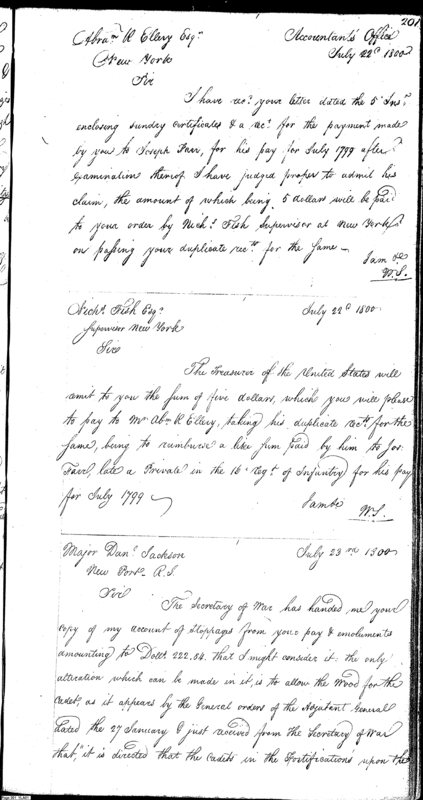 201
Abram R Ellery Esqr Accountants Office
New York July 22d 1800
Sir
I have recd your letter dated the 5 Inst
enclosing sundry certificates & a rect for the payment made
by you to Joseph Farr, for his pay for July 1799 after
examination thereof I have judged proper to admit his
claim, the amount of which being 5 dollars will be paid
to your order by Nichs Fish Supervisor at New York
on passing your duplicate rects for the same
I am &c
W.S.
Nichs Fish Esqr July 22d 1800
Supervisor New York
Sir
The Treasurer of the United States will
remit to you the sum of five dollars, which you will please
to pay to Mr Abm R Ellery, taking his duplicate rects for the
same, being to reimburse a like sum paid by him to Jos.
Farr late a Private in the 16 regt of Infantry for his pay
for July 1799
I am &c
W.S.
Major Danl Jackson July 23rd 1800
New Port R.I.
Sir
The Secretary of War has handed me your
copy of my account of Stoppages from your pay & emoluments
amounting to Dolls 222.34. that I might consider it; the only
alteration which can be made in it, is to allow the Wood for the
Cadet, as it appears by the General orders of the Adjutant General
dated the 27 January & just received from the Secretary of War
that, "it is directed that the Cadets in the Fortifications upon the